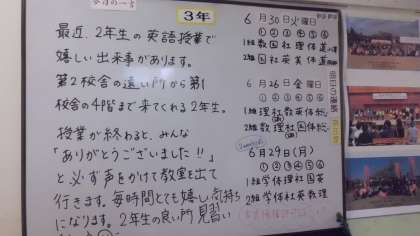 今日の一言
3年
最近、2年生の英語授業で
嬉しい出来事があります。
第2校舎の遠い所から第1
校舎の4階まで来てくれる2年生。
授業が終わると、みんな
「ありがとうございました!!」
と必ず声をかけて教室を出て
行きます。毎時間とても嬉しい気持ち
になります。2年生の良い所見習い
6月30日火曜日
①②③④⑤⑥
1組 数国社理体道
2組 国社英美体道
6月26日金曜日
①②③④⑤⑥
1組 理社数英体総
2組 数理社国体総
6月29日(月)
①②③④⑤⑥
1組 学体理社国英
2組 学体社英数理
明日の連絡